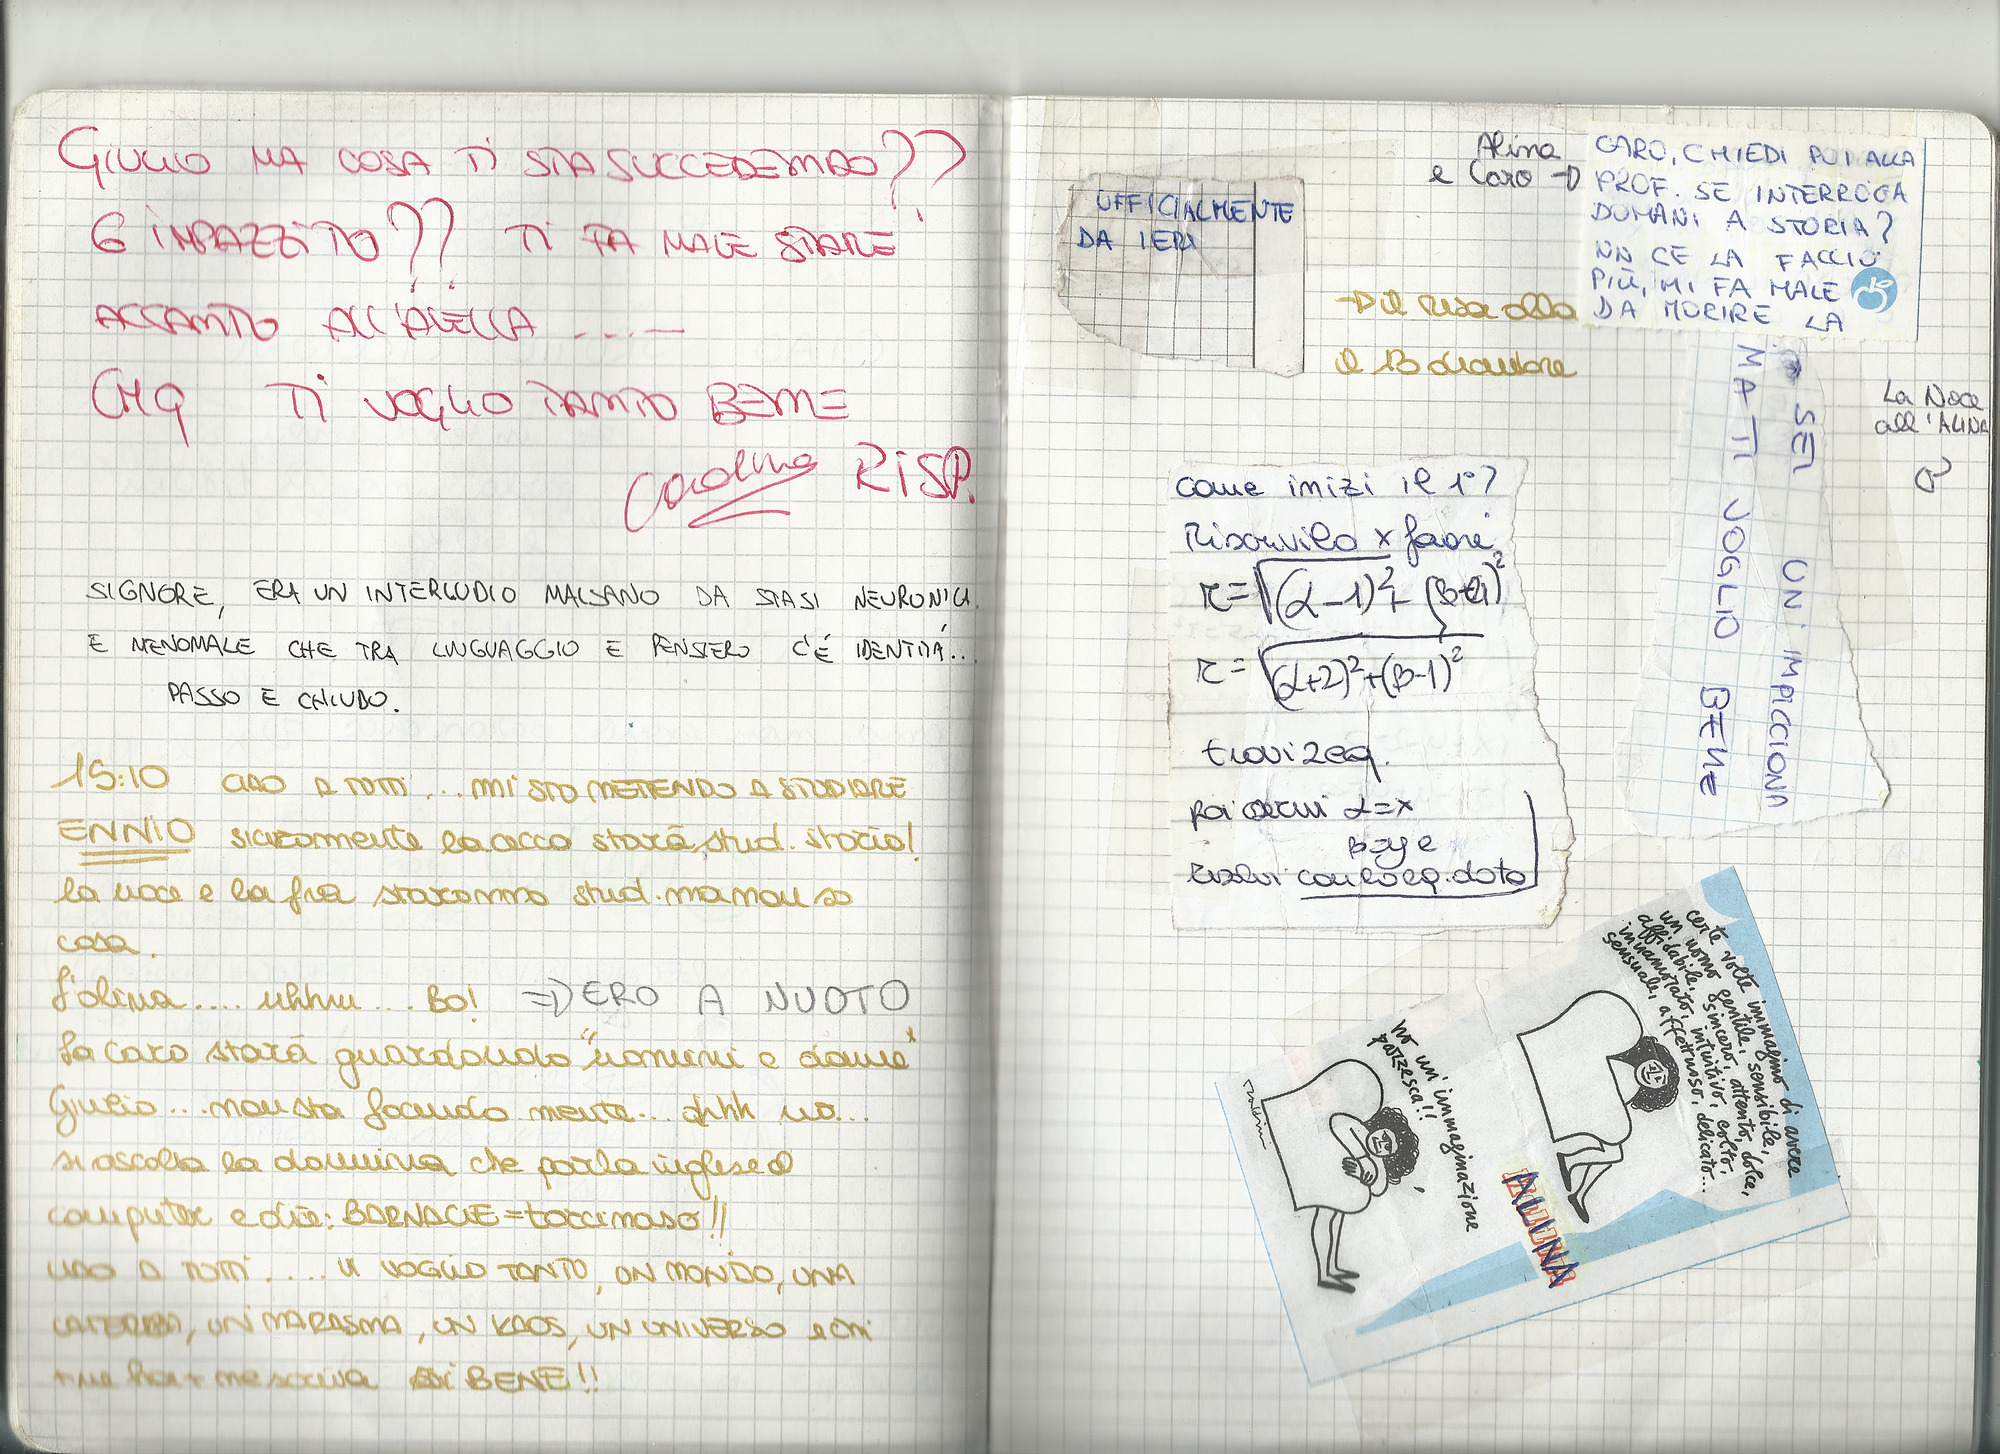 GIULIO MA COSA TI STA SUCCEDENDO??
6 IMPAZZITO?? TI FA MALE STARE
ACCANTO ALL'
CMQ TI VOGLIO TANTO BENE
Carolina RISP.
SIGNORE, ERA UN INTERLUDIO MALSANO DA STASI NEURONICA.
E MENOMALE CHE TRA LINGUAGGIO E PENSIERO C'É IDENTITÁ...
PASSO E CHIUDO.
15:10 CIAO A TUTTI... MI STO METTENDO A STUDIARE
ENNIO sicuramente la cecco starà stud. storia!
la noce e la fra staranno stud. ma non so
cosa.
L'alina.... uhhm.... BO! => ERO A NUOTO
La caro starà guardando "uomini e donne"
Giulio... non sta facendo niente... ahhh no...
si ascolta la donnina che parla inglese al
computer e dice: BARNACLE = !!
CIAO A TUTTI.... VI VOGLIO TANTO, UN MONDO, UNA
CATERBA, UN MARASMA, UN KAOS, UN UNIVERSO e chi
+ ne ha + ne scriva DI BENE!!
UFFICIALMENTE
DA IERI
Alina
e Caro ->
CARO, CHIEDI POI ALLA
PROF. SE INTERROGA
DOMANI A STORIA?
NN CE LA FACCIO
PIÙ, MI FA MALE
DA MORIRE LA
-> il alla
il 13 dicembre
SEI UN'IMPICCIONA
MA TI VOGLIO BENE
La Noce
all'ALINA
come inizi il 1°?
Riscrivilo x favore
r=√(α-1)²+(β+2)²
r=√(α+2)²+(β-1)²
trovi 2 eq.
poi scrivi α=x
β=y e
risolvi con la eq. data
certe volte immagino di avere
un uomo gentile, sensibile,
affidabile, sincero, attento, dolce,
innamorato, intuitivo, colto,
sensuale, affettuoso, delicato...
ho un'immaginazione
pazzesca!!
ALINA